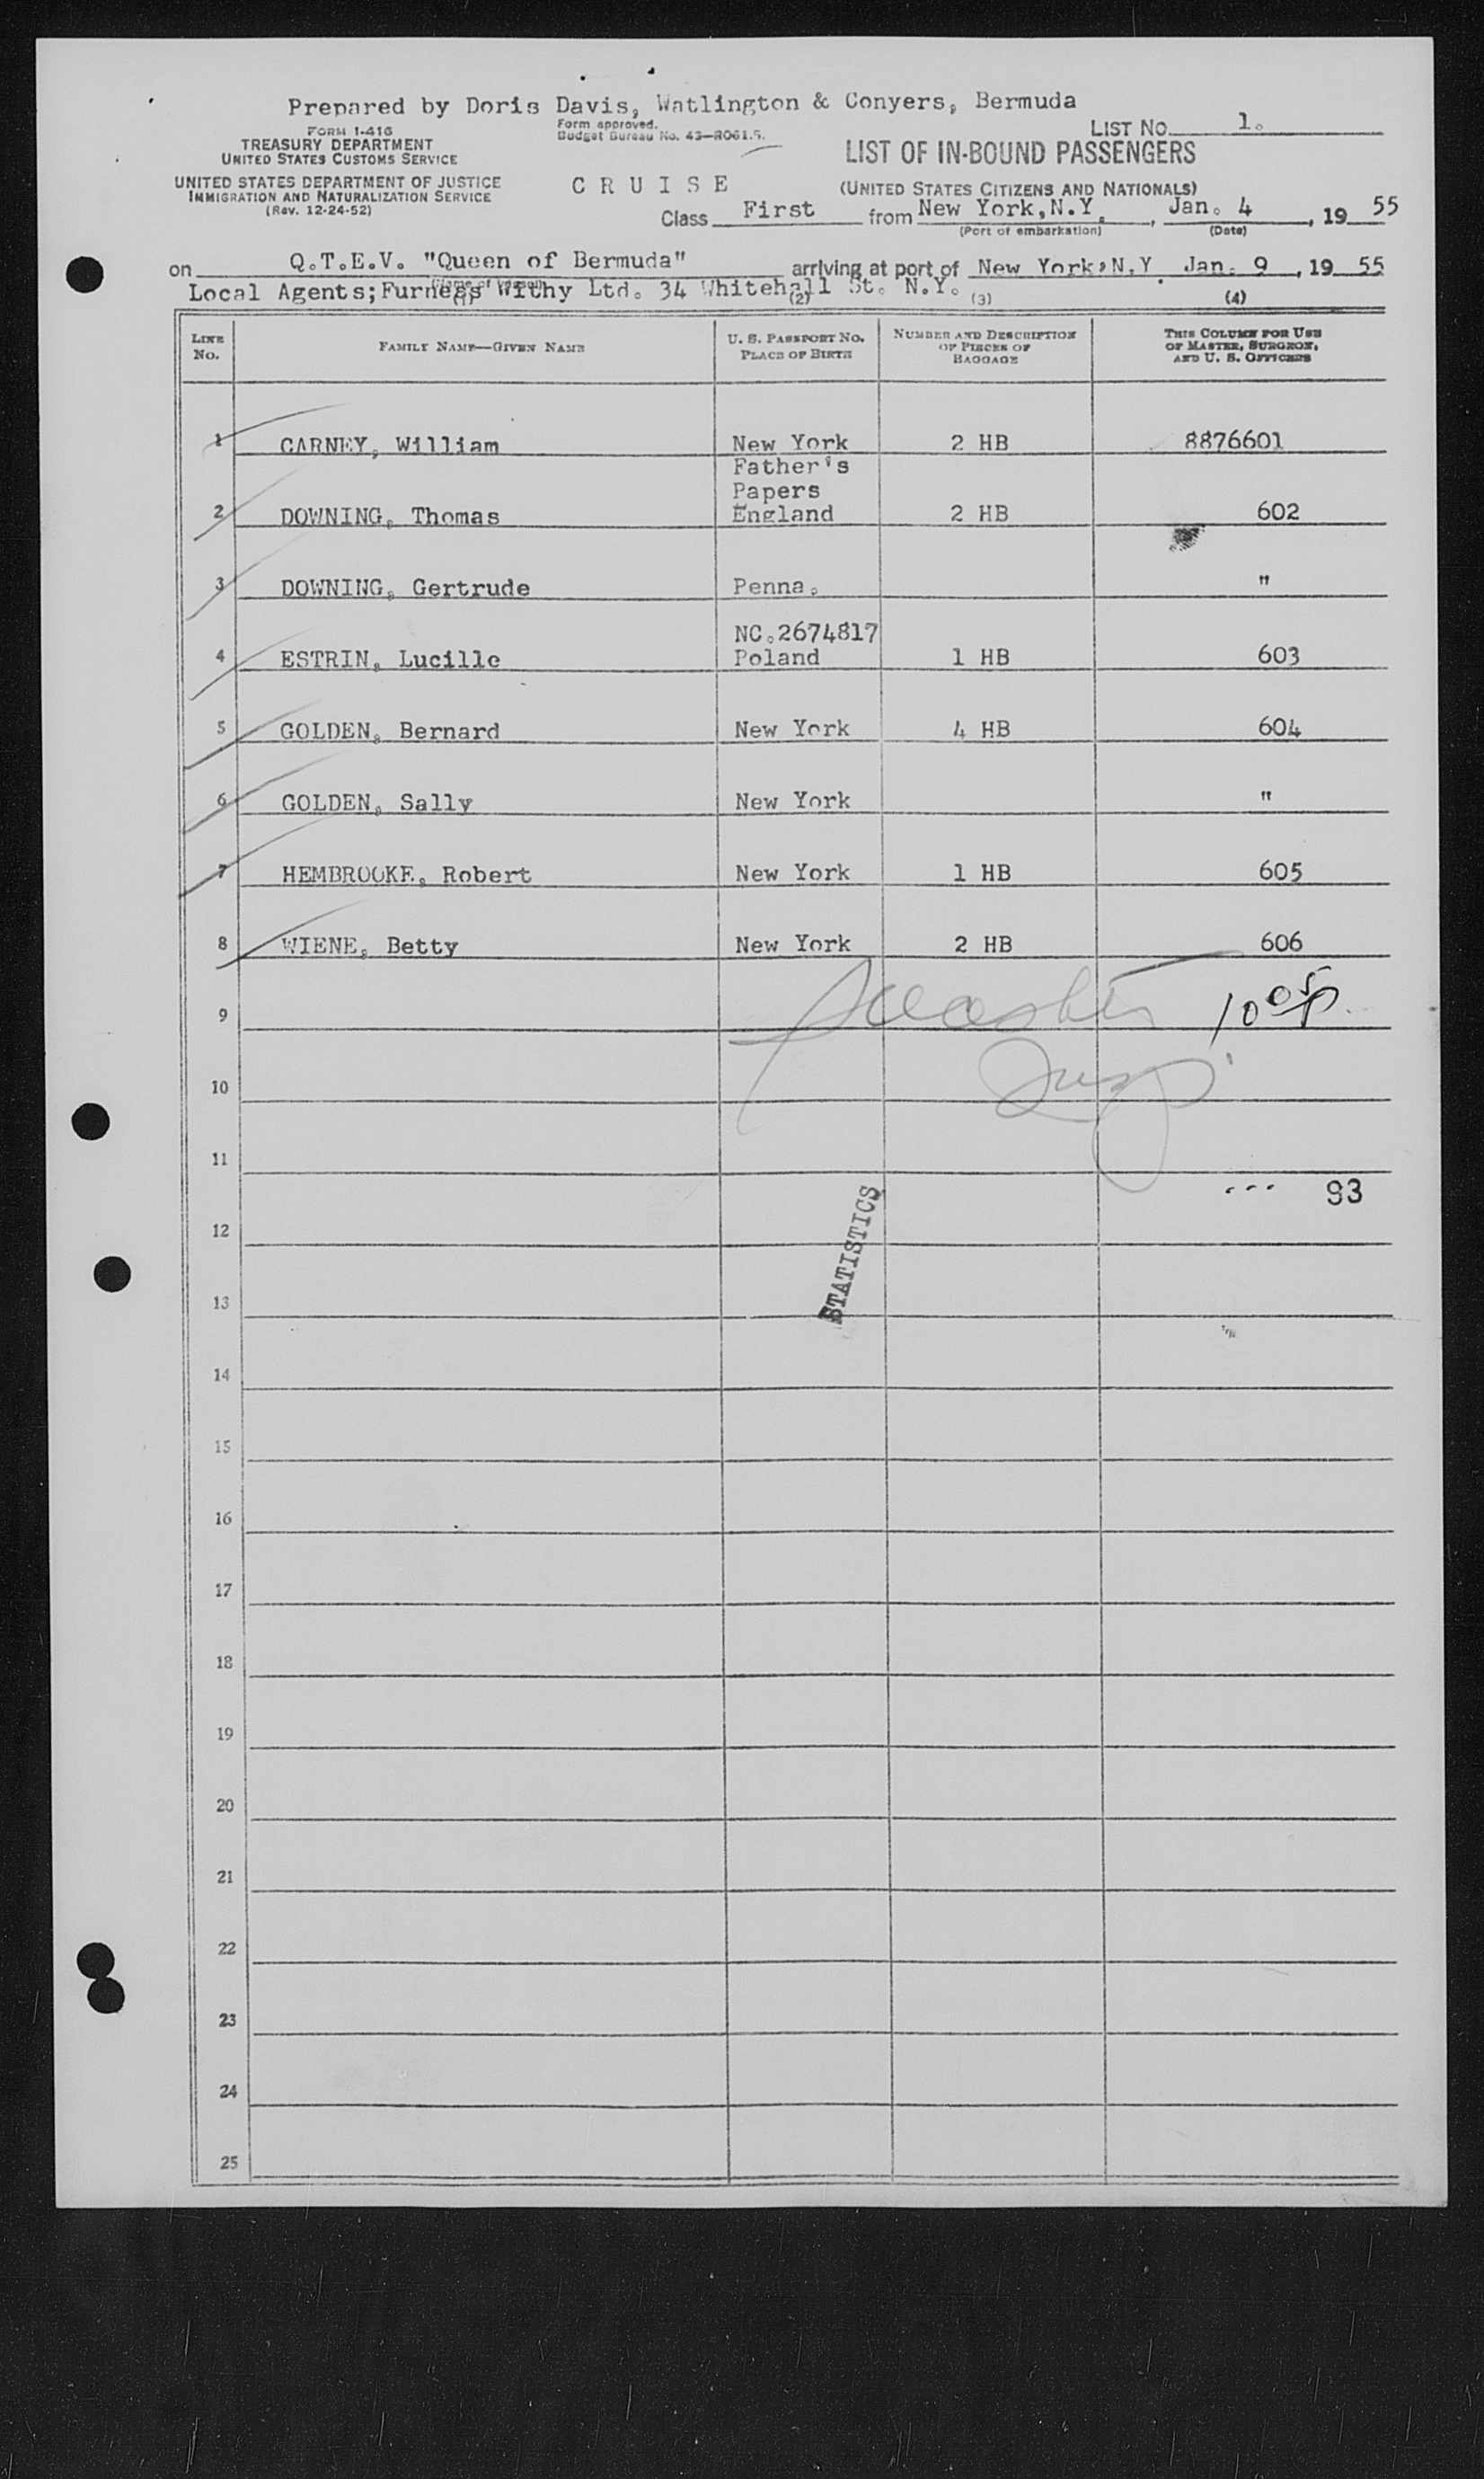 Prepared by Doris Davis, Watlington & Conyers, Bermuda
FORM I-416
TREASURY DEPARTMENT
UNITED STATES CUSTOMS SERVICE
UNITED STATES DEPARTMENT OF JUSTICE
IMMIGRATION AND NATURALIZATION SERVICE
(Rev. 12-24-52)
Form approved.
Budget Bureau No. 43—R061.5.
CRUISE
LIST NO. 1.
LIST OF IN-BOUND PASSENGERS
(UNITED STATES CITIZENS AND NATIONALS)
Class First from New York, N.Y., Jan. 4, 19 55
(Port of embarkation) (Date)
on Q.T.E.V. "Queen of Bermuda" arriving at port of New York, N.Y Jan. 9, 19 55
(Name of vessel)
Local Agents; Furness Withy Ltd. 34 Whitehall St. N.Y.
(1) (2) (3) (4)
LINE No. FAMILY NAME—GIVEN NAME U. S. PASSPORT NO. PLACE OF BIRTH NUMBER AND DESCRIPTION OF PIECES OF BAGGAGE THIS COLUMN FOR USE OF MASTER, SURGEON, AND U. S. OFFICERS
1 CARNEY, William New York 2 HB 8876601
Father's
Papers
2 DOWNING, Thomas England 2 HB 602
3 DOWNING, Gertrude Penna. "
NC.2674817
4 ESTRIN, Lucille Poland 1 HB 603
5 GOLDEN, Bernard New York 4 HB 604
6 GOLDEN, Sally New York "
7 HEMBROOKE, Robert New York 1 HB 605
8 WIENE, Betty New York 2 HB 606
9
10
11
93
12
STATISTICS
13
14
15
16
17
18
19
20
21
22
23
24
25